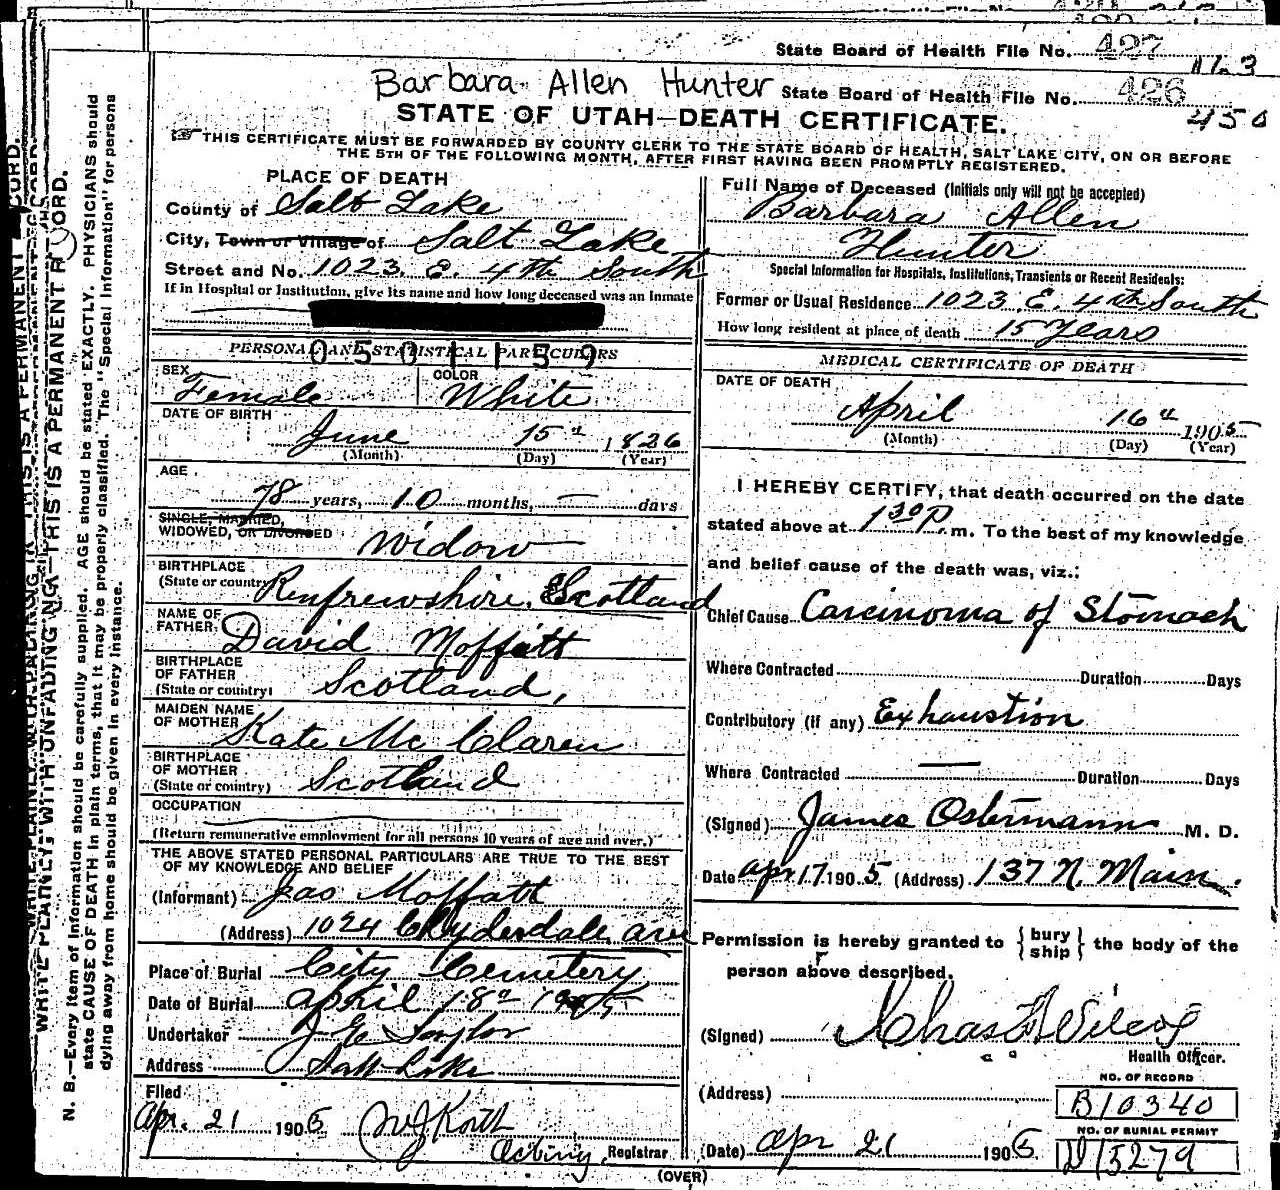 State Board of Health File No. 427
1163
Barbara Allen Hunter
State Board of Health File No. 426
450
STATE OF UTAH—DEATH CERTIFICATE.
THIS CERTIFICATE MUST BE FORWARDED BY COUNTY CLERK TO THE STATE BOARD OF HEALTH, SALT LAKE CITY, ON OR BEFORE
THE 5TH OF THE FOLLOWING MONTH, AFTER FIRST HAVING BEEN PROMPTLY REGISTERED.
PLACE OF DEATH
County of Salt Lake
City, Town or Village of Salt Lake
Street and No. 1023 E. 4th South
If in Hospital or Institution, give its name and how long deceased was an Inmate
PERSONAL AND STATISTICAL PARTICULARS
SEX Female
COLOR White
DATE OF BIRTH
June 15th 1826
(Month) (Day) (Year)
AGE
78 years, 10 months, — days
SINGLE, MARRIED,
WIDOWED, OR DIVORCED Widow
BIRTHPLACE
(State or country) Renfrewshire, Scotland
NAME OF
FATHER David Moffatt
BIRTHPLACE
OF FATHER
(State or country) Scotland,
MAIDEN NAME
OF MOTHER Kate Mc Claren
BIRTHPLACE
OF MOTHER
(State or country) Scotland
OCCUPATION
(Return remunerative employment for all persons 10 years of age and over.)
THE ABOVE STATED PERSONAL PARTICULARS ARE TRUE TO THE BEST
OF MY KNOWLEDGE AND BELIEF
(Informant) Jas Moffatt
(Address) 1024 Clydersdale ave
Place of Burial City Cemetery
Date of Burial April 18th 1905
Undertaker
Address Salt Lake
Filed
Apr. 21 1905
Acting Registrar
Full Name of Deceased (Initials only will not be accepted)
Barbara Allen
Hunter
Special Information for Hospitals, Institutions, Transients or Recent Residents:
Former or Usual Residence 1023 E. 4th South
How long resident at place of death 15 Years
MEDICAL CERTIFICATE OF DEATH
DATE OF DEATH
April 16th 1905
(Month) (Day) (Year)
I HEREBY CERTIFY, that death occurred on the date
stated above at 1 30 P. m. To the best of my knowledge
and belief cause of the death was, viz.:
Chief Cause Carcinoma of Stomach
Where Contracted Duration Days
Contributory (if any) Exhaustion
Where Contracted — Duration Days
(Signed) James Ostermann M. D.
Date Apr 17 1905 (Address) 137 N. Main.
Permission is hereby granted to { bury
ship } the body of the
person above described.
(Signed) Chas F Wilcox
Health Officer.
(Address)
NO. OF RECORD
B10340
NO. OF BURIAL PERMIT
D15279
(Date) Apr 21 1905
(OVER)
WRITE PLAINLY, WITH UNFADING INK—THIS IS A PERMANENT RECORD.
N. B.—Every item of Information should be carefully supplied. AGE should be stated EXACTLY. PHYSICIANS should
state CAUSE OF DEATH in plain terms, that it may be properly classified. The "Special Information" for persons
dying away from home should be given in every instance.